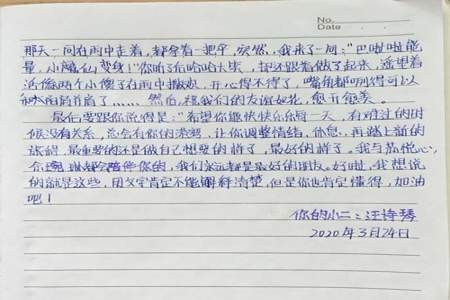 No.
Date
那天一同在雨中走着，都拿着一把伞，突然，我来了一句："巴啦啦能
量，小魔仙变身！"你听了后哈哈大笑，却还跟着做了起来，远望着
活像两个小傻子在雨中撒欢，开心得不得了，嘴角都咧得可以
和太阳肩并肩了……然后，祝我们的友谊如花，愈开愈美。
最后要跟你说得是："希望你能快快乐乐每一天，有难过的时
候没有关系，总会有你的港湾，让你调整情绪，休息，再踏上新的
旅途，最重要的还是做自己想要的样子，最好的样子，我与苏悦心、
都会陪伴你的，我们永远都是最好的朋友。好啦，我想说
的就是这些，用文字肯定不能解释清楚，但是你也肯定懂得，加油
吧！
你的小二：汪诗琴
2020年3月24日